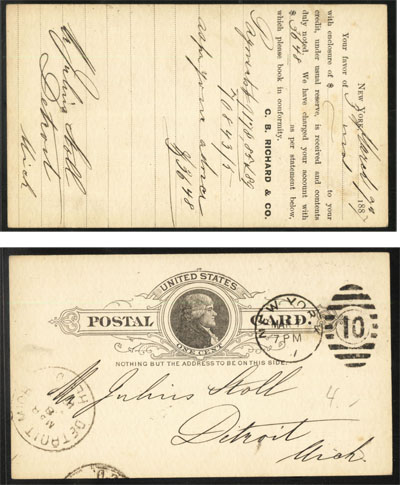 NEW YORK, March 188
Your favor of
with enclosure of $ to your
credit, under usual reserve, is received and contents
duly noted. We have charged your account with
$ 36.48 as per statement below,
which please book in conformity.
C. B. RICHARD & CO.
as per your advice
$36.48
Mr. Julius Stoll
Detroit
Mich
UNITED STATES
POSTAL CARD.
ONE CENT
NOTHING BUT THE ADDRESS TO BE ON THIS SIDE.
NEW YORK
MAR
7 PM
10
DETROIT
Mr. Julius Stoll
4.
Detroit
Mich.